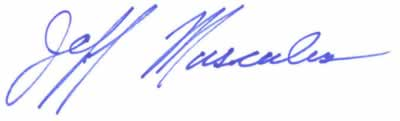 Jeff Muscales